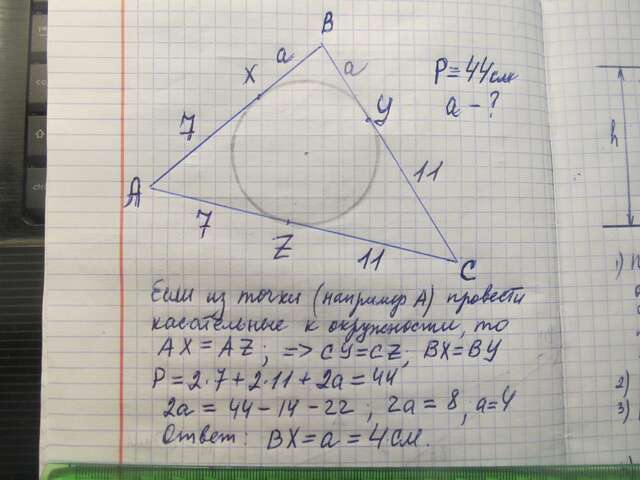 B
a
a
X
P=44см
a - ?
У
7
h
11
A
7
Z
11
C
Если из точки (например А) провести
касательные к окружности, то
AX = AZ; => CY=CZ; BX=BY
P = 2·7 + 2·11 + 2a = 44
2a = 44 - 14 - 22 ; 2a = 8, a=4
Ответ: BX = a = 4 см.
1)
2)
3)